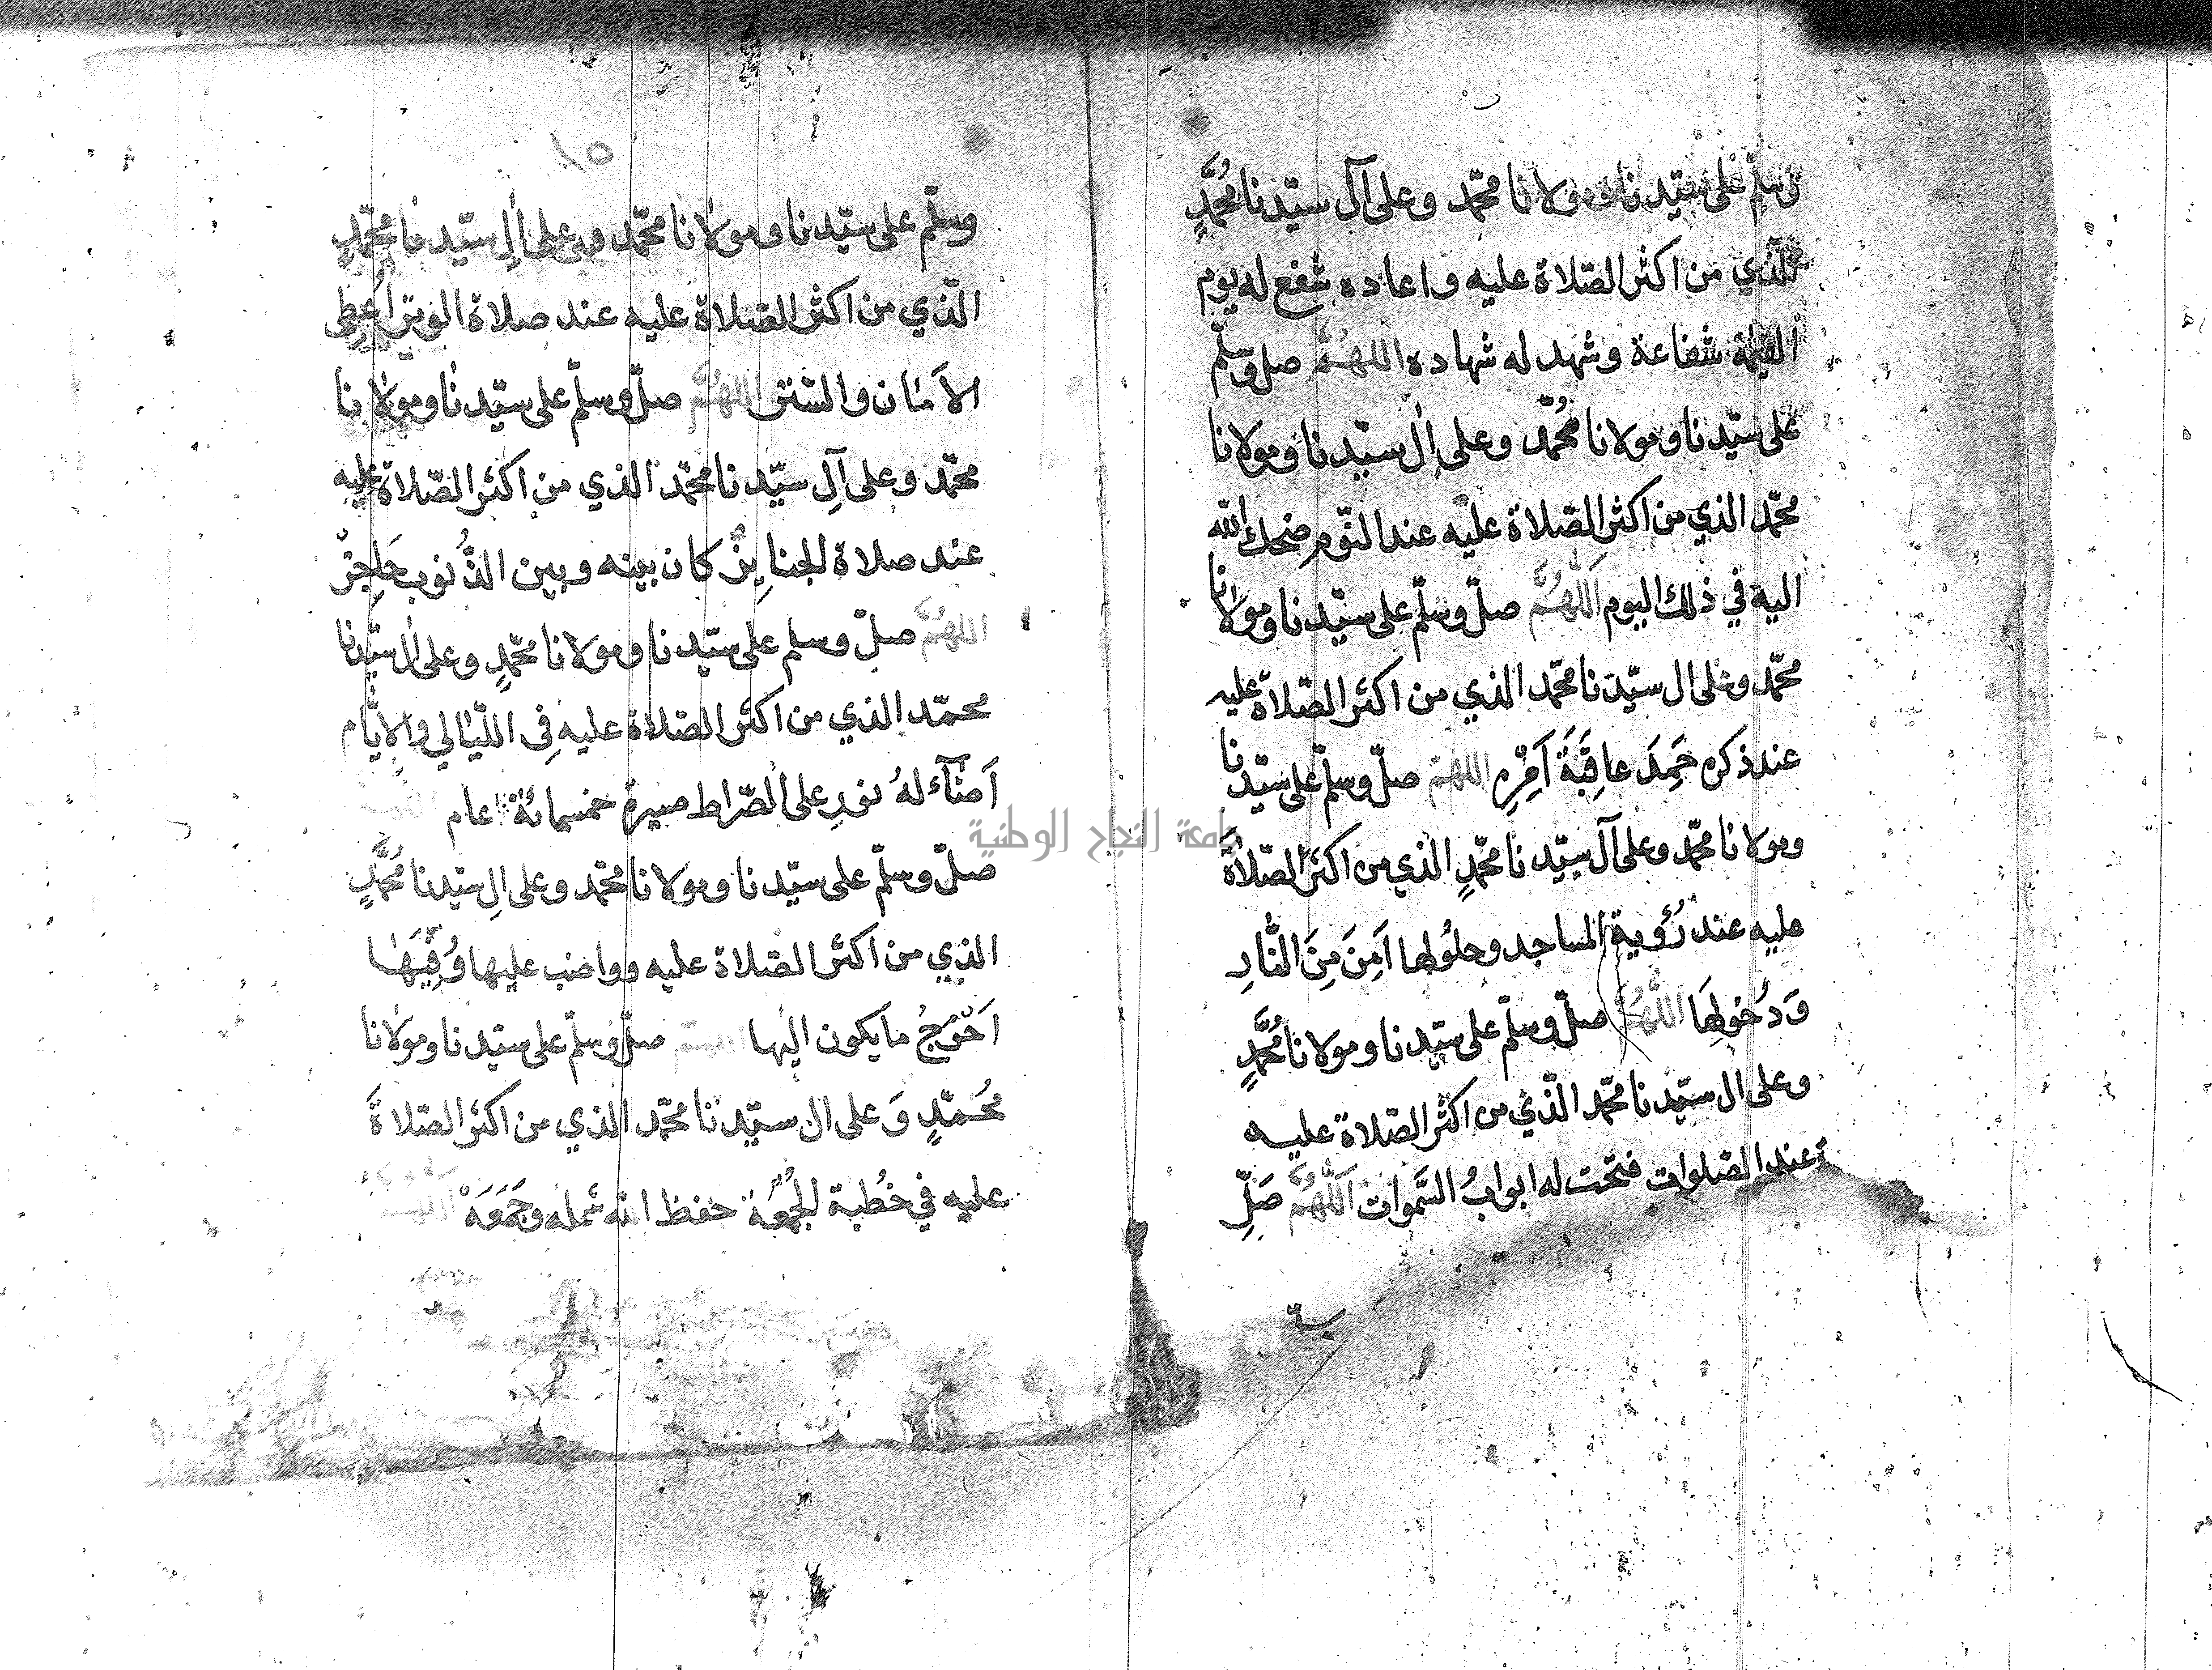 وسلّم على سيّدنا ومولانا محمّد وعلى آل سيّدنا مُحمَّدٍ
الّذي من اكثر الصّلاة عليه واعاده شفع له يوم
القيٰمة شفاعة وشهد له شهاده اللهُمَّ صل وسلّم
على سيّدنا ومولانا مُحمّد وعلى اٰل سيّدنا ومولانا
محمّد الذي من اكثر الصّلاة عليه عند النّوم ضحك الله
اليه في ذلك اليوم اَللّٰهُمَّ صلّ وسلّم على سيّدنا ومولانا
محمّد وعلى ال سيّدنا محمّد الذي من اكثر الصّلاة عليه
عند ذكره حَمِدَ عاقِبَةَ اَمْرِهِ اللهمّ صلّ وسلّم على سيّدنا
ومولانا محمّد وعلى آل سيّدنا محمّدٍ الذي من اكثر الصّلاةَ
عليه عند رُؤية المساجد وحلُولها اَمِنَ مِنَ النَّارِ
وَدُخولِهَا اللّٰهُمَّ صلّ وسلّم على سيّدنا ومولانا مُحمَّدٍ
وعلى ال سيّدنا محمّد الّذي من اكثر الصّلاة عليه
عند الصّلوات فتحت له ابوابُ السَّموات اَللّٰهُمَّ صَلِّ
١٥
وسلّم على سيّدنا ومولانا محمّد وعلى اٰلِ سيّدنا محمّدٍ
الّذي من اكثر الصّلاة عليه عند صلاة الوتر اُعطِى
الاَمان والستر اللهُمَّ صلّ وسلّم على سيّدنا ومولانا
محمّد وعلى آلِ سيّدنا محمّد الذي من اكثر الصّلاة عليه
عند صلاة الجنايز كان بينه وبين الذُّنوب حَاجِزْ
اللهُمَّ صلّ وسلم على سيّدنا ومولانا محمّدٍ وعلى اٰل سيّدنا
محمّد الذي من اكثر الصّلاة عليه فِى اللّيٰالي والايّام
اَضآءَ لهُ نور على الصّراط مسيرة خمسمائة عام
صلّ وسلّم على سيّدنا ومولانا محمّد وعلى الِ سيّدنا مُحمَّدٍ
الذي من اكثر الصّلاة عليه وواضب عليها وُقِيَهَا
اَحْوَجُ ما يكون اليها صلّ وسلّم على سيّدنا ومولانا
مُحمّدٍ وَعلى ال سيّدنا محمّد الذي من اكثر الصّلاةَ
عليه في خُطبة الجُمُعَة حفظ الله شمله وجَمَعَهْ
جامعة النجاح الوطنية